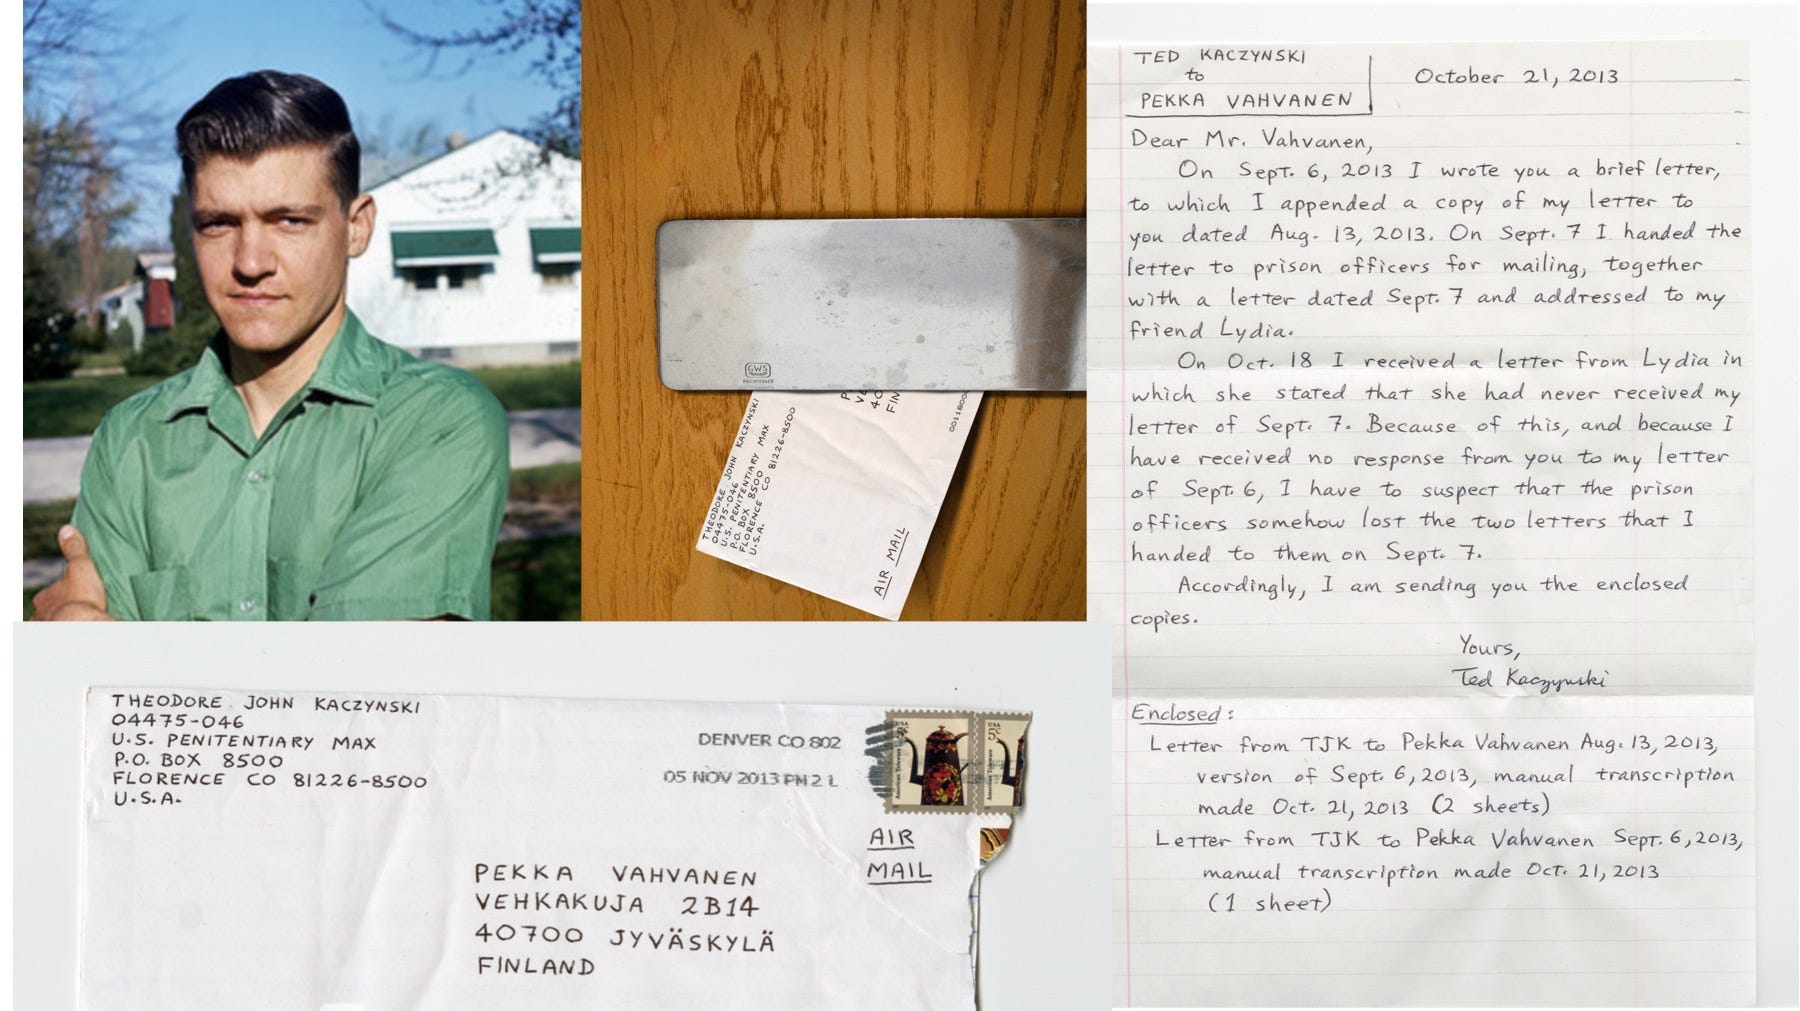 GWS
PALMUSSET
P
VE
40
FIN
0011800
THEODORE JOHN KACZYNSKI
04475-046
U.S. PENITENTIARY MAX
P.O. BOX 8500
FLORENCE CO 81226-8500
U.S.A.
AIR MAIL
THEODORE JOHN KACZYNSKI
04475-046
U.S. PENITENTIARY MAX
P.O. BOX 8500
FLORENCE CO 81226-8500
U.S.A.
DENVER CO 802
05 NOV 2013 PM 2 L
USA
5c
American Toleware
USA
5c
American Toleware
AIR
MAIL
PEKKA VAHVANEN
VEHKAKUJA 2B14
40700 JYVÄSKYLÄ
FINLAND
TED KACZYNSKI
to
PEKKA VAHVANEN
October 21, 2013
Dear Mr. Vahvanen,
On Sept. 6, 2013 I wrote you a brief letter,
to which I appended a copy of my letter to
you dated Aug. 13, 2013. On Sept. 7 I handed the
letter to prison officers for mailing, together
with a letter dated Sept. 7 and addressed to my
friend Lydia.
On Oct. 18 I received a letter from Lydia in
which she stated that she had never received my
letter of Sept. 7. Because of this, and because I
have received no response from you to my letter
of Sept. 6, I have to suspect that the prison
officers somehow lost the two letters that I
handed to them on Sept. 7.
Accordingly, I am sending you the enclosed
copies.
Yours,
Ted Kaczynski
Enclosed:
Letter from TJK to Pekka Vahvanen Aug. 13, 2013,
version of Sept. 6, 2013, manual transcription
made Oct. 21, 2013 (2 sheets)
Letter from TJK to Pekka Vahvanen Sept. 6, 2013,
manual transcription made Oct. 21, 2013
(1 sheet)